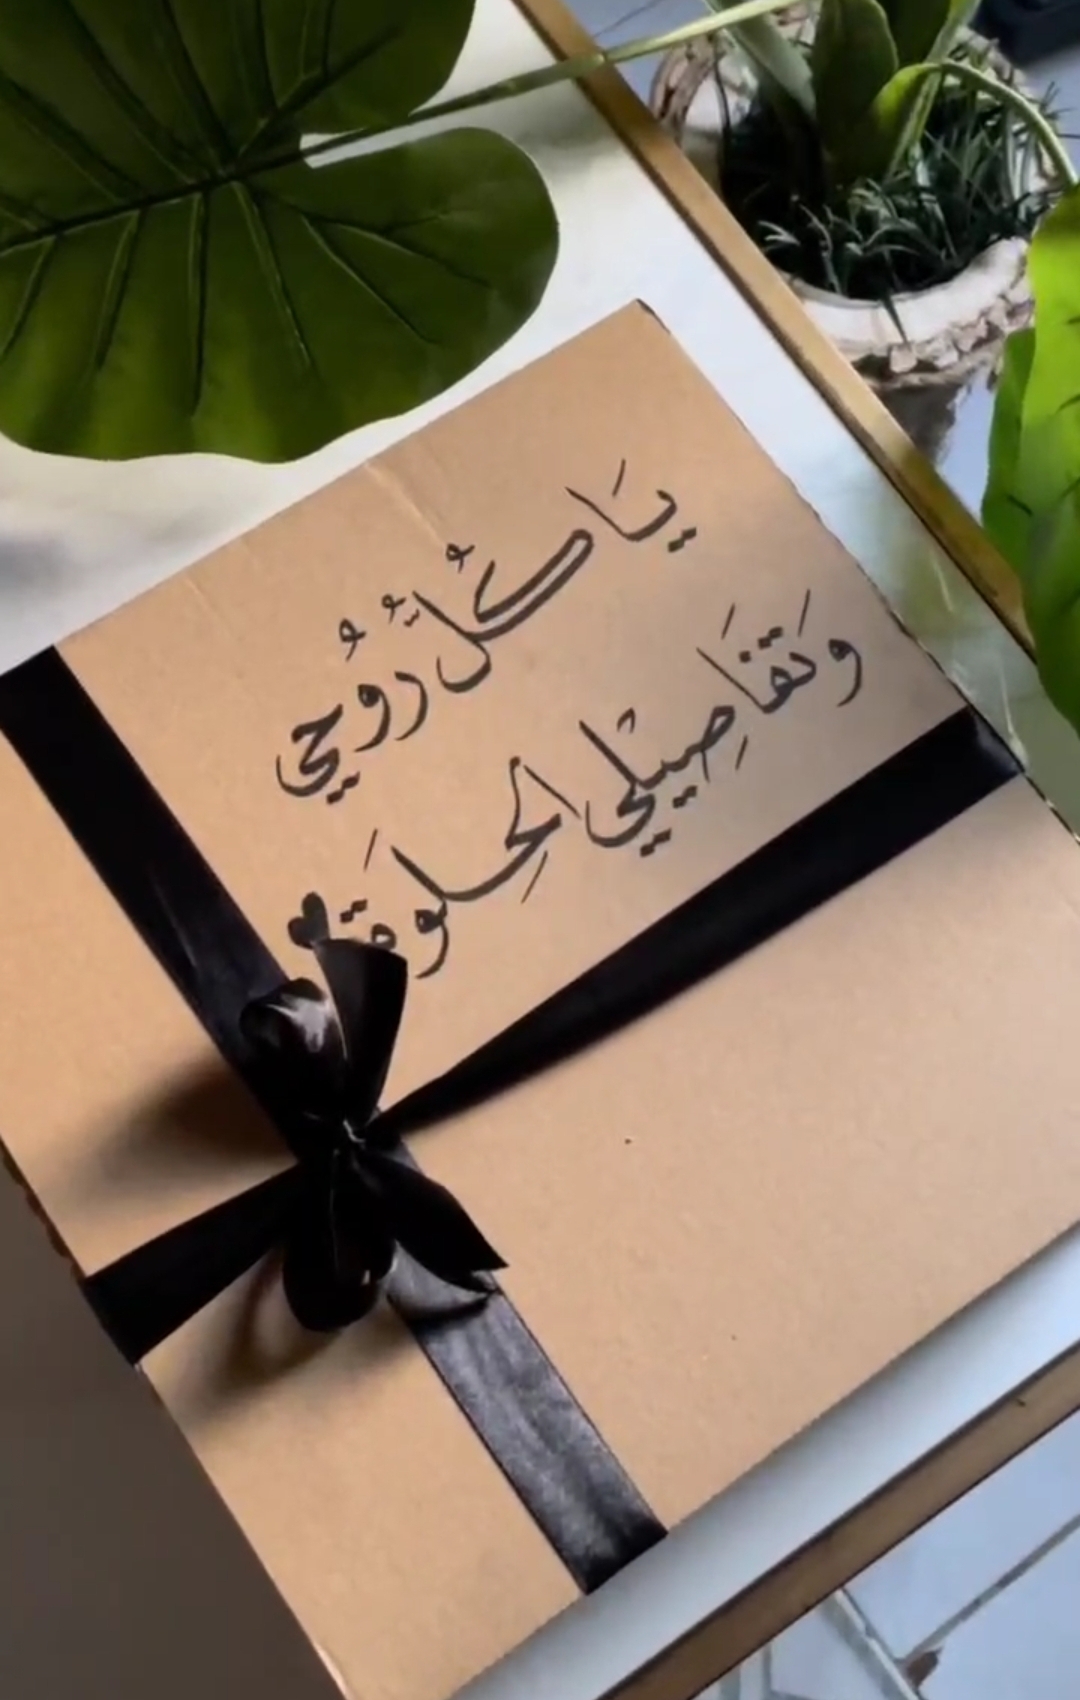 يَا كُلُّ رُوُحي
وَتَفَاصِيْلي الحِلوَة